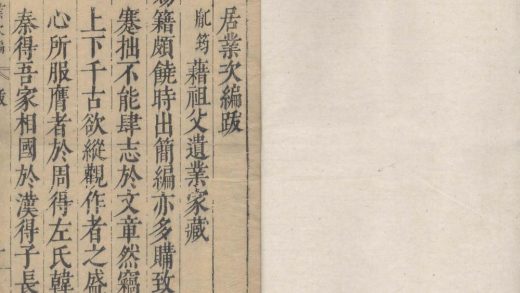 居業次編跋
胤筠藉祖父遺業家藏
籍頗饒時出簡編亦多購致
蹇拙不能肆志於文章然竊
上下千古欲縱觀作者之盛
心所服膺者於周得左氏韓
秦得吾家相國於漢得子長